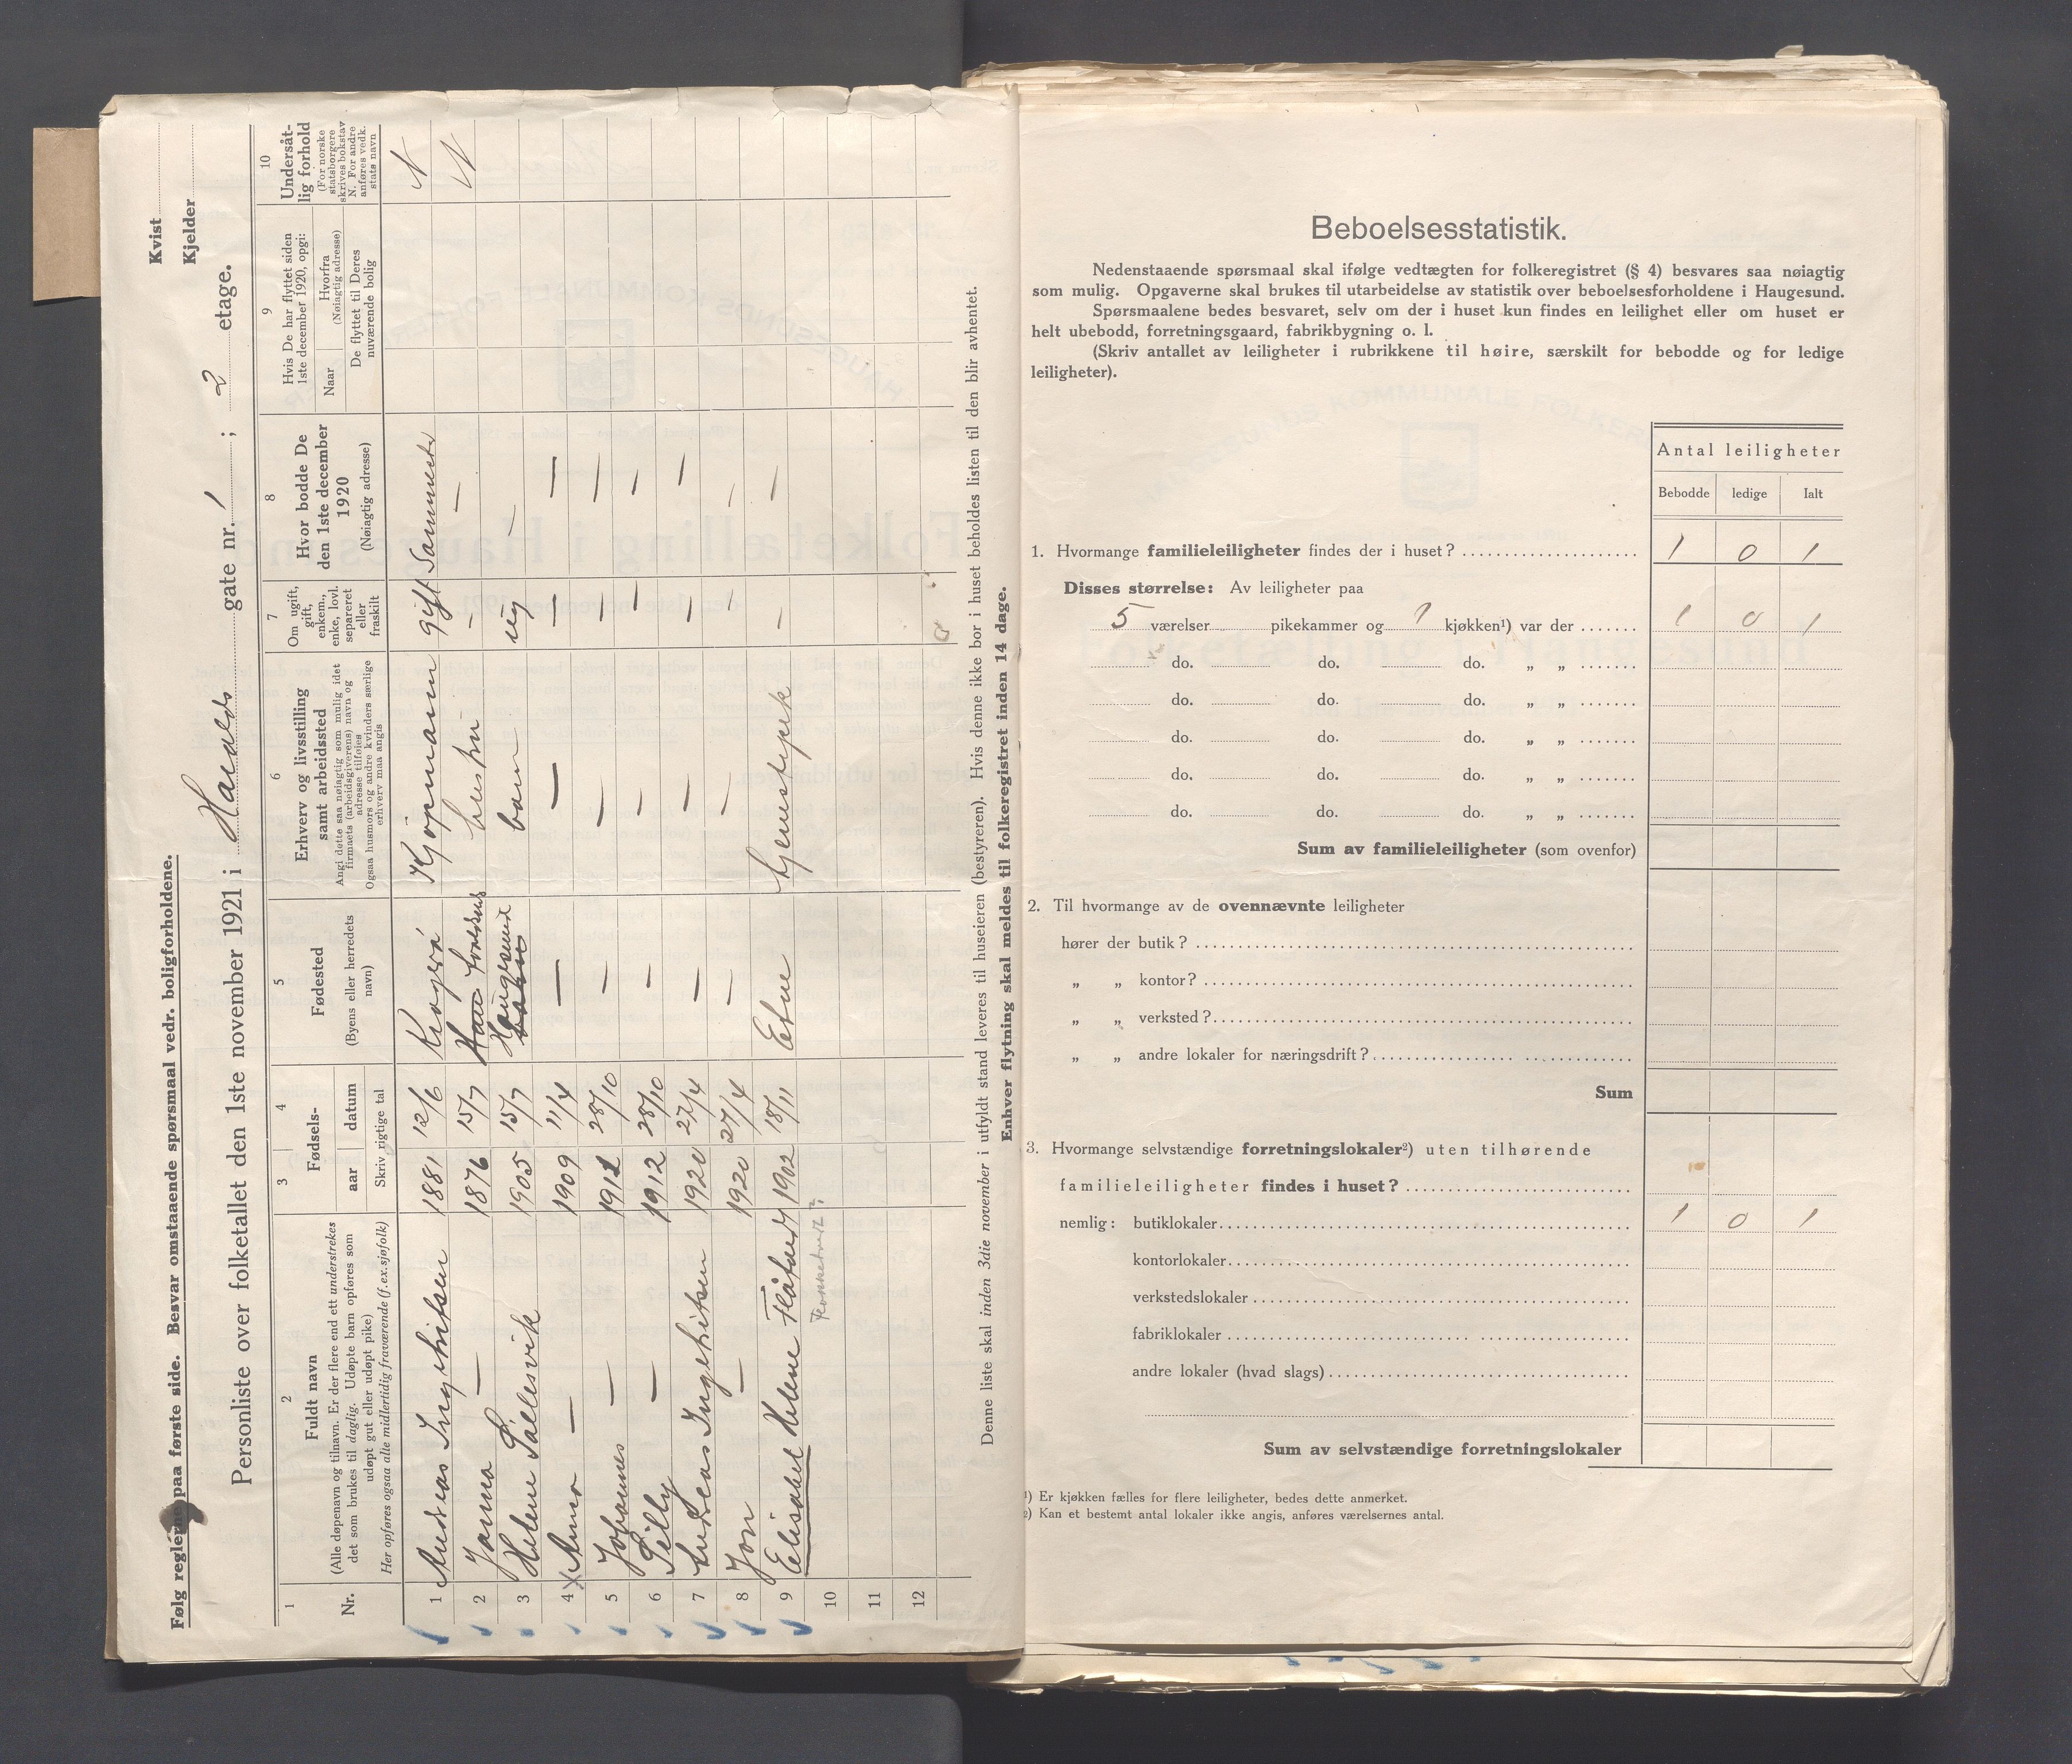 Følg reglerne paa første side. Besvar omstaaende spørsmaal vedr. boligforholdene.
Kvist
Kjelder
Personliste over folketallet den 1ste november 1921 i Haralds gate nr. 1 ; 2 etage.
1
Nr.
2
Fuldt navn
(Alle døpenavn og tilnavn. Er der flere end ett understrekes
det som brukes til daglig. Udøpte barn opføres som
udøpt gut eller udøpt pike)
Her opføres ogsaa alle midlertidig fraværende (f.ex.sjøfolk)
3 4
Fødsels-
aar datum
Skriv rigtige tal
5
Fødested
(Byens eller herredets
navn)
6
Erhverv og livsstilling
samt arbeidssted
Angi dette saa nøiagtig som mulig idet
firmaets (arbeidsgiverens) navn og
adresse tilføies
Ogsaa husmors og andre kvinders særlige
erhverv maa angis
7
Om ugift,
gift,
enkem.,
enke, lovl.
separeret
eller
fraskilt
8
Hvor bodde De
den 1ste december
1920
(Nøiagtig adresse)
9
Hvis De har flyttet siden
1ste december 1920, opgi:
Naar
Hvorfra
(Nøiagtig adresse)
De flyttet til Deres
nuværende bolig
10
Undersåt-
lig forhold
(For norske
statsborgere
skrives bokstav
N. For andre
anføres vedk.
stats navn
1 Andreas Ingebritsen 1881 12/6 Kjøpmann gift Sammested N
2 Janna — 1876 15/7 hustru — — N
3 Helene Sællesvik 1905 15/7 Haugesund barn ug —
4 Anna — 1909 11/4 — — — —
5 Johannes — 1912 28/10 — — — —
6 Tilly — 1912 28/10 — — — —
7 Andreas Ingebritsen 1920 27/4 — — — —
8 Jon — 1920 27/4 — — — —
9 Elisabet Helene 1902 18/11 Etne tjenestepik — —
10
11
12
Denne liste skal inden 3die november i utfyldt stand leveres til huseieren (bestyreren). Hvis denne ikke bor i huset beholdes listen til den blir avhentet.
Enhver flytning skal meldes til folkeregistret inden 14 dage.
Beboelsesstatistik.
Nedenstaaende spørsmaal skal ifølge vedtægten for folkeregistret (§ 4) besvares saa nøiagtig
som mulig. Opgaverne skal brukes til utarbeidelse av statistik over beboelsesforholdene i Haugesund.
Spørsmaalene bedes besvaret, selv om der i huset kun findes en leilighet eller om huset er
helt ubebodd, forretningsgaard, fabrikbygning o. l.
(Skriv antallet av leiligheter i rubrikkene til høire, særskilt for bebodde og for ledige
leiligheter).
Antal leiligheter
Bebodde ledige Ialt
1. Hvormange familieleiligheter findes der i huset? 1 0 1
Disses størrelse: Av leiligheter paa
5 værelser pikekammer og 1 kjøkken¹) var der 1 0 1
do. do. do. „ „
do. do. do. „ „
do. do. do. „ „
do. do. do. „ „
do. do. do. „ „
Sum av familieleiligheter (som ovenfor)
2. Til hvormange av de ovennævnte leiligheter
hører der butik?
„ „ kontor?
„ „ verksted?
„ „ andre lokaler for næringsdrift?
Sum
3. Hvormange selvstændige forretningslokaler²) uten tilhørende
familieleiligheter findes i huset?
nemlig: butiklokaler 1 0 1
kontorlokaler
verkstedslokaler
fabriklokaler
andre lokaler (hvad slags)
Sum av selvstændige forretningslokaler
¹) Er kjøkken fælles for flere leiligheter, bedes dette anmerket.
²) Kan et bestemt antal lokaler ikke angis, anføres værelsernes antal.